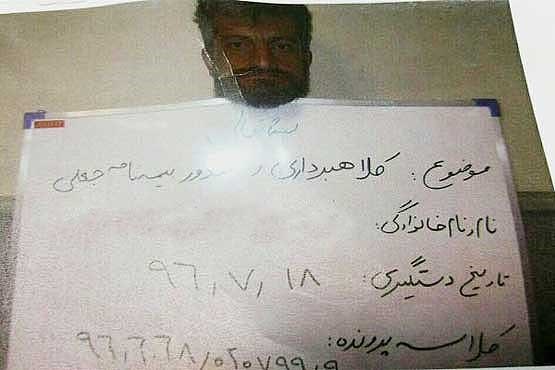 موضوع: کلاهبرداری و صدور بیمه‌نامه جعلی
نام و نام خانوادگی:
تاریخ دستگیری: ۹۶٫۷٫۱۸
کلاسه پرونده: